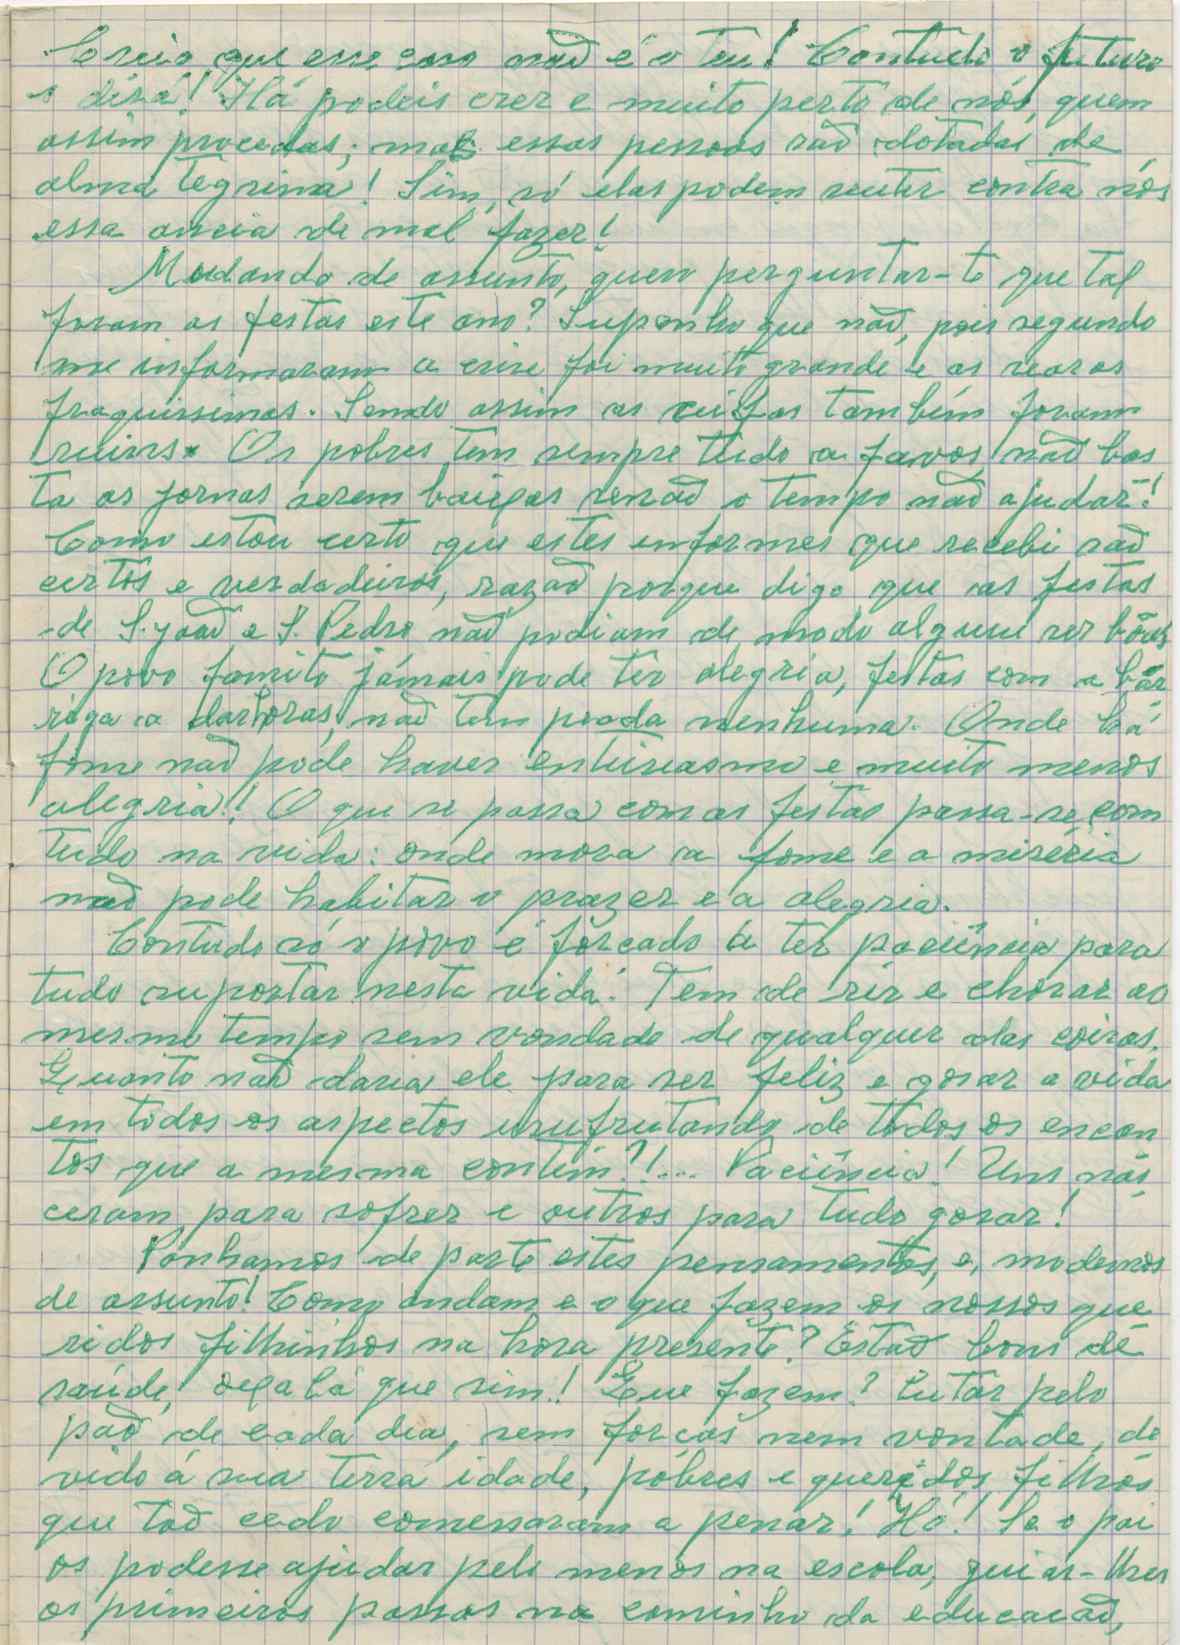 Creio que esse caso não é o teu! Contudo o futuro
o dirá! Há podeis crer e muito perto de nós, quem
assim procedas; mas essas pessoas são dotadas de
alma tegrina! Sim, só elas podem sentir contra nós
essa anceia de mal fazer!
Mudando de assunto, quero perguntar-te que tal
foram as festas este ano? Suponho que não, pois segundo
me informaram a crise foi muito grande e as searas
fraquissimas. Sendo assim as ceifas tambêm foram
ruins. Os pobres tem sempre tudo a favor, não bas
ta as jornas serem baixas senão o tempo não ajudar!
Como estou certo que estes informes que recebi são
certos e verdadeiros, razão porque digo que as festas
de S. João e S. Pedro não podiam de modo algum ser bôas
O povo faminto jámais pode ter alegria, festas com a bár
riga a dar horas, não tem piada nenhuma. Onde há
fome não póde haver entusiasmo e muito menos
alegria! O que se passa com as festas passa-se com
tudo na vida: onde mora a fome e a miséria
não pode habitar o prazer e a alegria.
Contudo só o povo é forcado á ter paciência para
tudo suportar nesta vida. Tem de rir e chorar ao
mesmo tempo sem vondade de qualquer das coisas.
Quanto não daria ele para ser feliz e gosar a vida
em todos os aspectos usufrutando de todos os encan
tos que a mesma contêm?!... Paciência! Uns nás
ceram para sofrer e outros para tudo gosar!
Ponhamos de parte estes pensamentos, e, mudemos
de assunto! Como andam e o que fazem os nossos que
ridos filhinhos na hora presente? Estão bons de
saúde, oxalá que sim! Que fazem? Lutar pelo
pão de cada dia, sem forcas nem vontade, de
vido á sua terra idade, póbres e queridos filhos
que tão cedo comessaram a penar! Hó! Se o pai
os podesse ajudar pelo menos na escola, guiar-lhes
os primeiros passos no caminho da educacão,